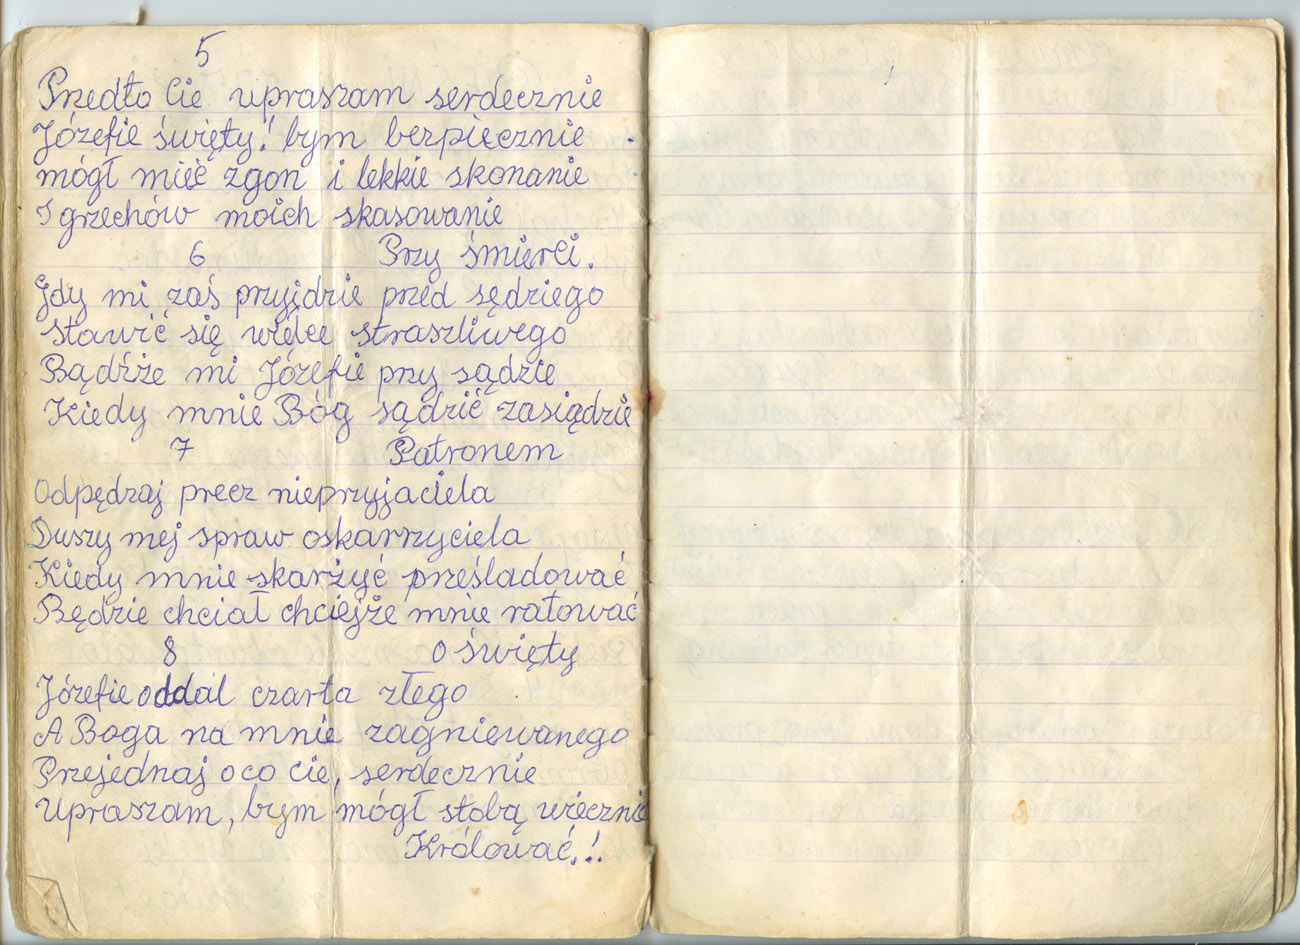 5
Przedto Cie upraszam serdecznie
Józefie święty! bym bezpiecznie
mógł mieć zgon i lekkie skonanie
I grzechów moich skasowanie
6 Przy śmierci.
Gdy mi zaś przyjdzie przed sędziego
stawić się wielce straszliwego
Bądźże mi Józefie przy sądzie
Kiedy mnie Bóg sądzić zasiądzie
7 Patronem
Odpędzaj precz nieprzyjaciela
Duszy mej spraw oskarzyciela
Kiedy mnie skarżyć prześladować
Będzie chciał chciejże mnie ratować
8 O święty
Józefie oddal czarta złego
A Boga na mnie zagniewanego
Przejednaj oco cie, serdecznie
Upraszam, bym mógł stobą wiecznie
Królować,!